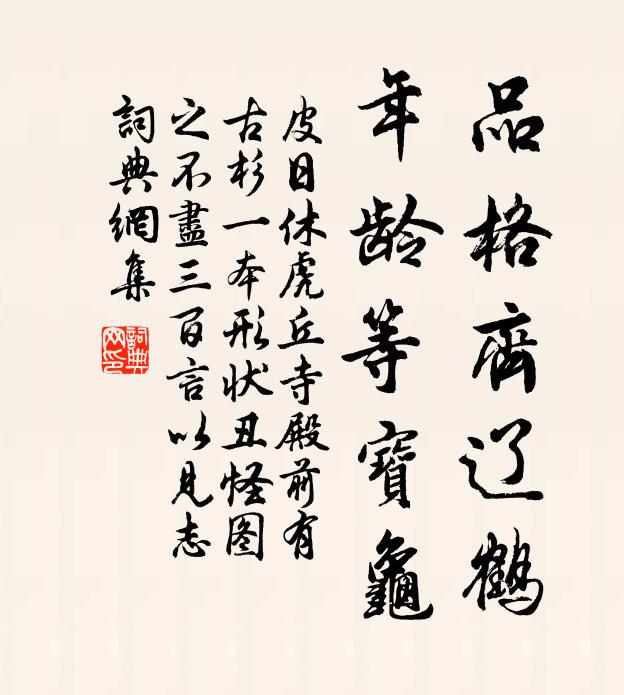 品格齊辽鹤
年龄等寶龜
皮日休虎丘寺殿前有
古杉一本形状丑怪图
之不盡三百言以見志
詞典網集
詞典
网印